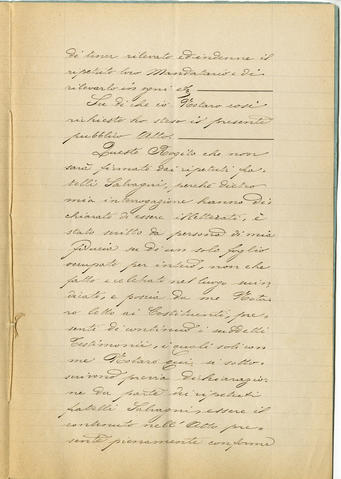 di tener rilevato ed indenne il
ripetuto loro Mandatario e di
rilevarlo in ogni
Su di che io Notaro così
richiesto ho steso il presente
pubblico Atto.
Questo Rogito che non
sarà firmato dai ripetuti fra-
telli Salvagni, perchè dietro
mia interrogazione hanno di-
chiarato di essere illetterati, è
stato scritto da persona di mia
fiducia su di un solo foglio
occupato per intero, non che
fatto e celebrato nel luogo suin-
dicato, e poscia da me Nota-
ro letto ai Costituenti, pre-
senti di continuo i suddetti
Testimoni, i quali soli con
me Notaro qui si sotto-
scrivono previa dichiarazio-
ne da parte dei ripetuti
fratelli Salvagni, essere il
contenuto nell'Atto pre-
sente pienamente conforme